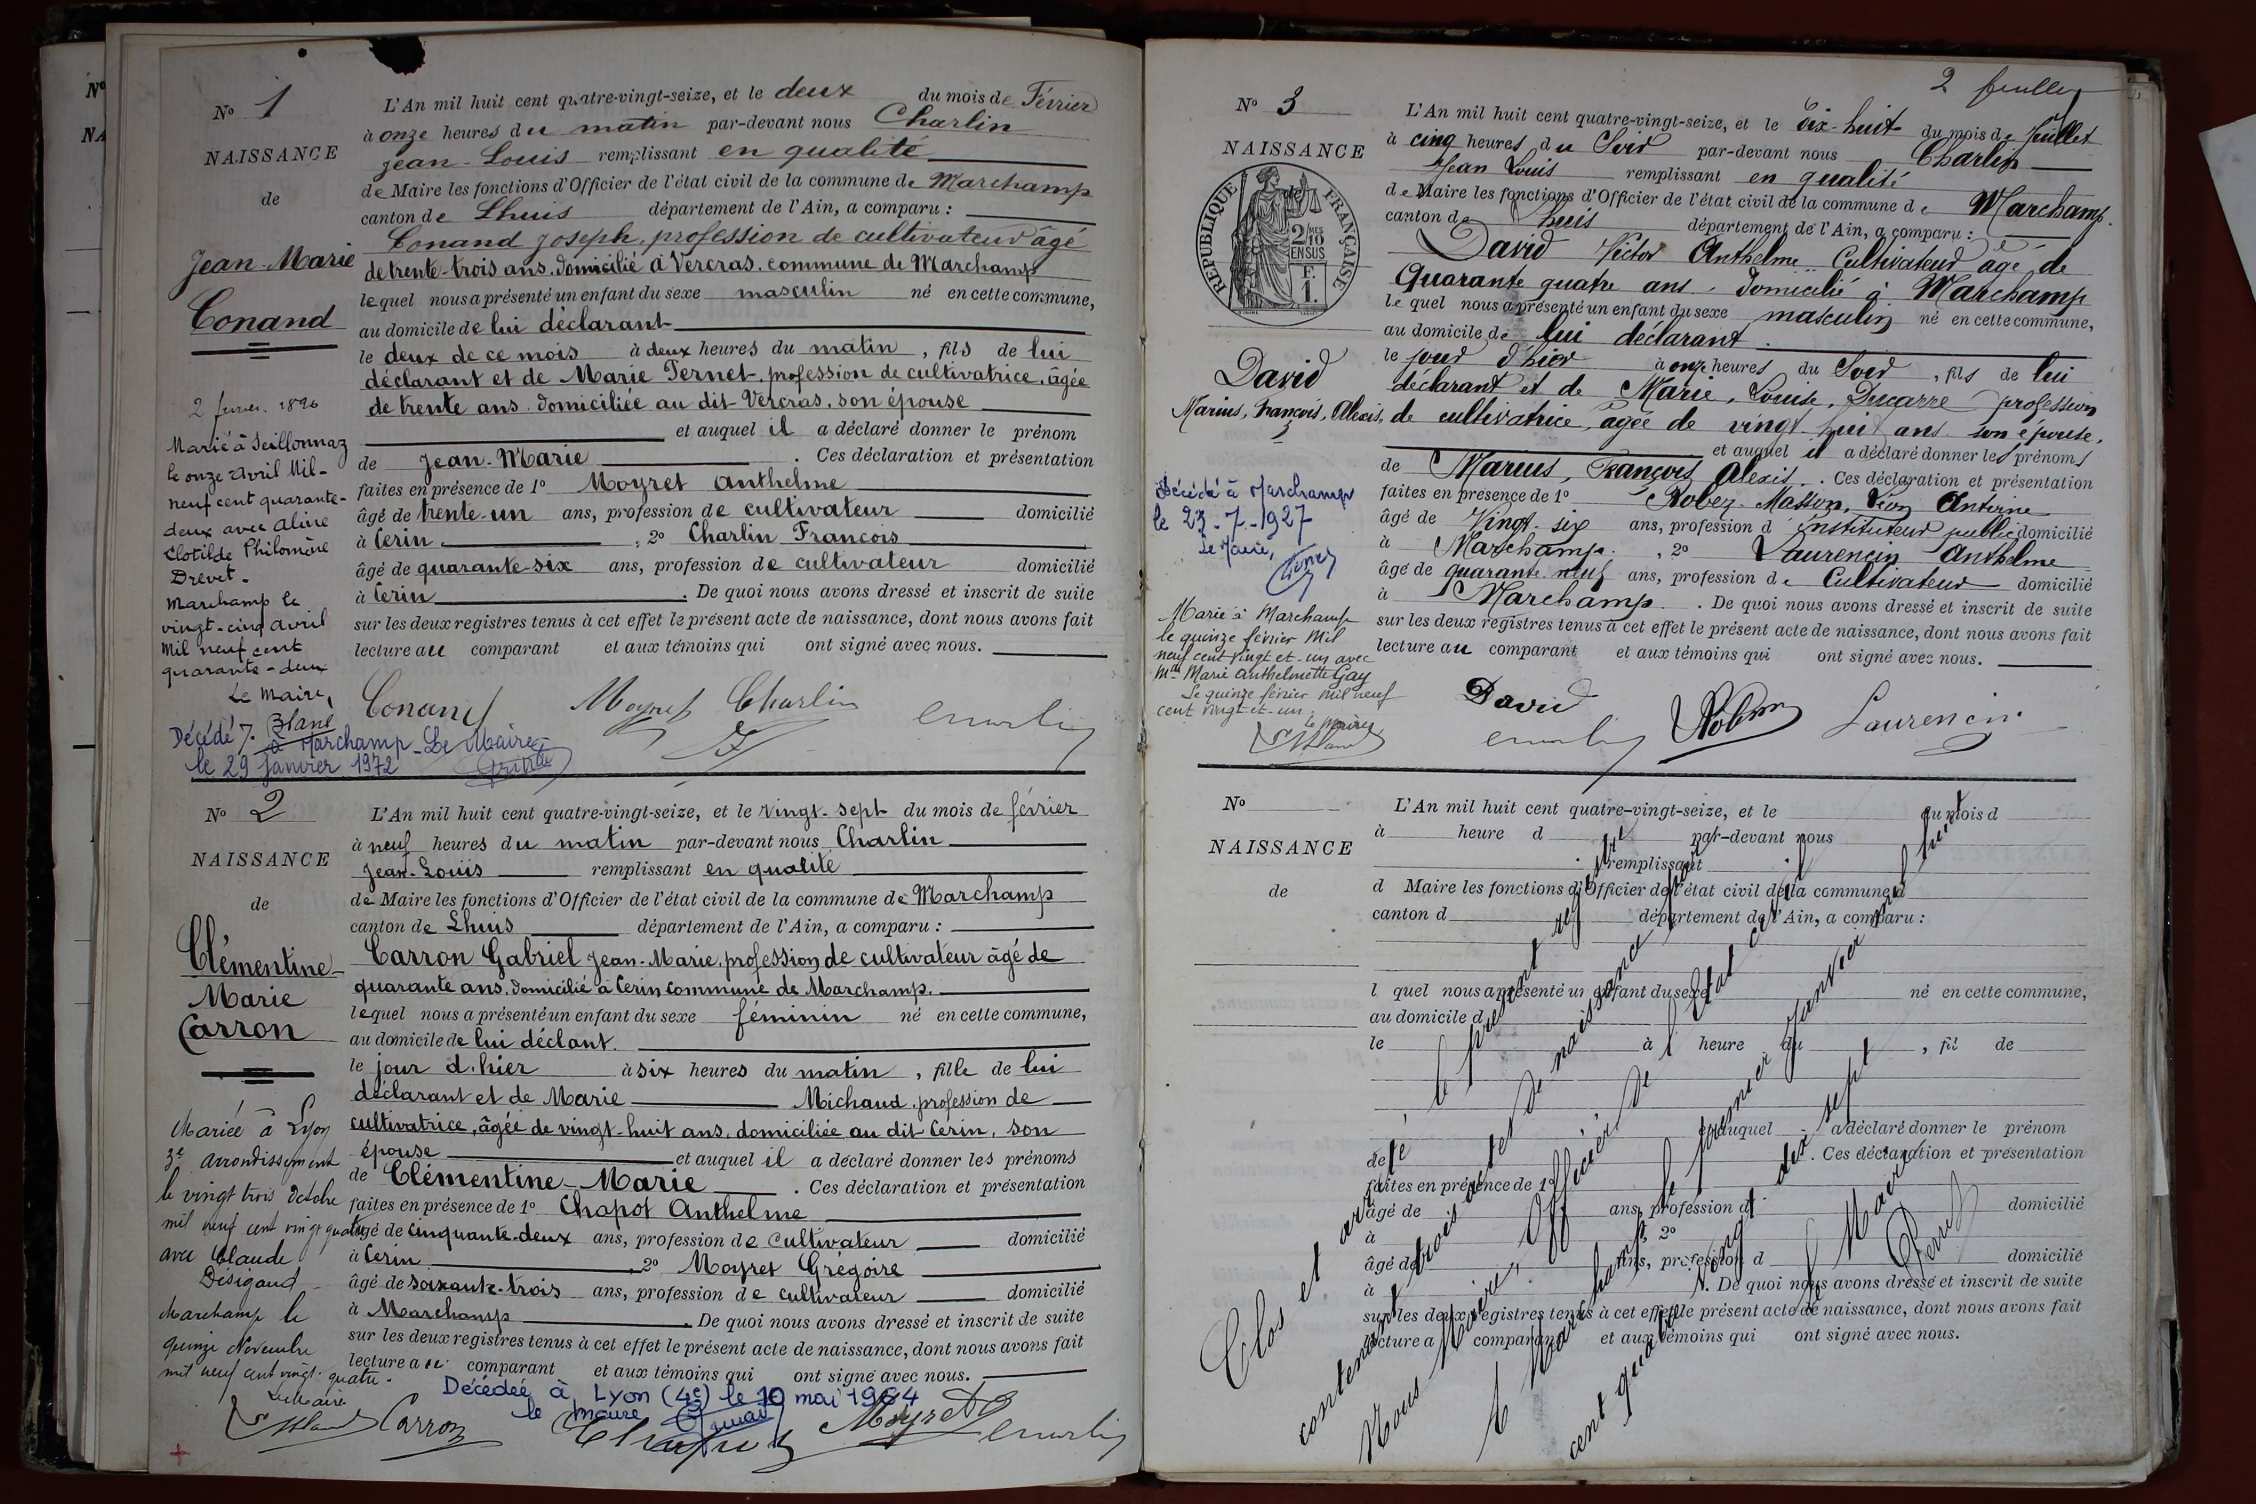 Nº 1
NAISSANCE
de
Jean-Marie
Conand
2 février 1896
Marié à Seillonnaz
le onze Avril Mil-
neuf cent quarante-
deux avec Aline
Clotilde Philomène
Drevet.
Marchamp le
vingt-cinq avril
Mil neuf cent
quarante-deux
Le Maire,
Décédé à Marchamp - Le Maire,
le 29 Janvier 1972
L'An mil huit cent quatre-vingt-seize, et le deux du mois de Février
à onze heures du matin par-devant nous Charlin
Jean-Louis remplissant en qualité
de Maire les fonctions d'Officier de l'état civil de la commune de Marchamp
canton de Lhuis département de l'Ain, a comparu :
Conand Joseph, profession de cultivateur âgé
de trente-trois ans, domicilié à Vercras, commune de Marchamp
lequel nous a présenté un enfant du sexe masculin né en cette commune,
au domicile de lui déclarant
le deux de ce mois à deux heures du matin, fils de lui
déclarant et de Marie Pernet, profession de cultivatrice, âgée
de trente ans domiciliée au dit Vercras, son épouse
et auquel il a déclaré donner le prénom
de Jean-Marie. Ces déclaration et présentation
faites en présence de 1º Moyret Anthelme
âgé de trente-un ans, profession de cultivateur domicilié
à Cerin, 2º Charlin François
âgé de quarante-six ans, profession de cultivateur domicilié
à Cerin. De quoi nous avons dressé et inscrit de suite
sur les deux registres tenus à cet effet le présent acte de naissance, dont nous avons fait
lecture au comparant et aux témoins qui ont signé avec nous.
Conand Moyret Charlin Charlin
Nº 2
NAISSANCE
de
Clémentine
Marie
Carron
Mariée à Lyon
3e arrondissement
le vingt trois octobre
mil neuf cent vingt quatre
avec Claude
Désigaud
Marchamp le
quinze Novembre
mil neuf cent vingt-quatre.
Le Maire
L'An mil huit cent quatre-vingt-seize, et le vingt-sept du mois de février
à neuf heures du matin par-devant nous Charlin
Jean-Louis remplissant en qualité
de Maire les fonctions d'Officier de l'état civil de la commune de Marchamp
canton de Lhuis département de l'Ain, a comparu :
Carron Gabriel Jean-Marie, profession de cultivateur âgé de
quarante ans, domicilié à Cerin commune de Marchamp.
lequel nous a présenté un enfant du sexe féminin né en cette commune,
au domicile de lui déclant.
le jour d'hier à six heures du matin, fille de lui
déclarant et de Marie Michaud, profession de
cultivatrice, âgée de vingt-huit ans, domiciliée au dit Cerin, son
épouse et auquel il a déclaré donner les prénoms
de Clémentine-Marie. Ces déclaration et présentation
faites en présence de 1º Chapot Anthelme
âgé de cinquante-deux ans, profession de cultivateur domicilié
à Cerin 2º Moyret Grégoire
âgé de soixante-trois ans, profession de cultivateur domicilié
à Marchamp. De quoi nous avons dressé et inscrit de suite
sur les deux registres tenus à cet effet le présent acte de naissance, dont nous avons fait
lecture au comparant et aux témoins qui ont signé avec nous.
Décédée à Lyon (4e) le 10 mai 1964
le maire
Carron Moyret Charlin
2 feuilles
Nº 3
NAISSANCE
de
RÉPUBLIQUE FRANÇAISE
2/10 MES
EN SUS
F.
1.
David
Marius, François, Alexis
Décédé à Marchamp
le 23-7-1927
Le Maire,
Marié à Marchamp
le quinze février Mil
neuf cent vingt et-un avec
Mlle Marie Anthelmette Gay
Le quinze février mil neuf
cent vingt-et-un.
Le Maire
L'An mil huit cent quatre-vingt-seize, et le dix-huit du mois de Juillet
à cinq heures du Soir par-devant nous Charlin
Jean Louis remplissant en qualité
de Maire les fonctions d'Officier de l'état civil de la commune de Marchamp
canton de Lhuis département de l'Ain, a comparu :
David Victor Anthelme Cultivateur âgé de
Quarante quatre ans domicilié à Marchamp
lequel nous a présenté un enfant du sexe masculin né en cette commune,
au domicile de lui déclarant.
le jour d'hier à onze heures du Soir, fils de lui
déclarant et de Marie, Louise, Ducarre profession
de cultivatrice, âgée de vingt-huit ans son épouse.
et auquel il a déclaré donner les prénoms
de Marius, François Alexis. Ces déclaration et présentation
faites en présence de 1º Robez-Masson, Léon Antoine
âgé de Vingt-six ans, profession d'instituteur public domicilié
à Marchamp, 2º Laurencin Anthelme
âgé de quarante-neuf ans, profession de Cultivateur domicilié
à Marchamp. De quoi nous avons dressé et inscrit de suite
sur les deux registres tenus à cet effet le présent acte de naissance, dont nous avons fait
lecture au comparant et aux témoins qui ont signé avec nous.
David Charlin Laurencin
Nº
NAISSANCE
de
L'An mil huit cent quatre-vingt-seize, et le du mois d
à heure d par-devant nous
remplissant
d Maire les fonctions d'Officier de l'état civil de la commune d
canton d département de l'Ain, a comparu :
l quel nous a présenté un enfant du sexe né en cette commune,
au domicile d
le à heure du, fil de
et auquel a déclaré donner le prénom
de. Ces déclaration et présentation
faites en présence de 1º
âgé de ans, profession d domicilié
à, 2º
âgé de ans, profession d domicilié
à. De quoi nous avons dressé et inscrit de suite
sur les deux registres tenus à cet effet le présent acte de naissance, dont nous avons fait
lecture a comparant et aux témoins qui ont signé avec nous.
Clos et arrêté le présent registre
contenant trois actes de naissance par
Nous Maire, Officier de l'état civil
à Marchamp, le premier janvier mil huit
cent quatre vingt dix sept
Le Maire